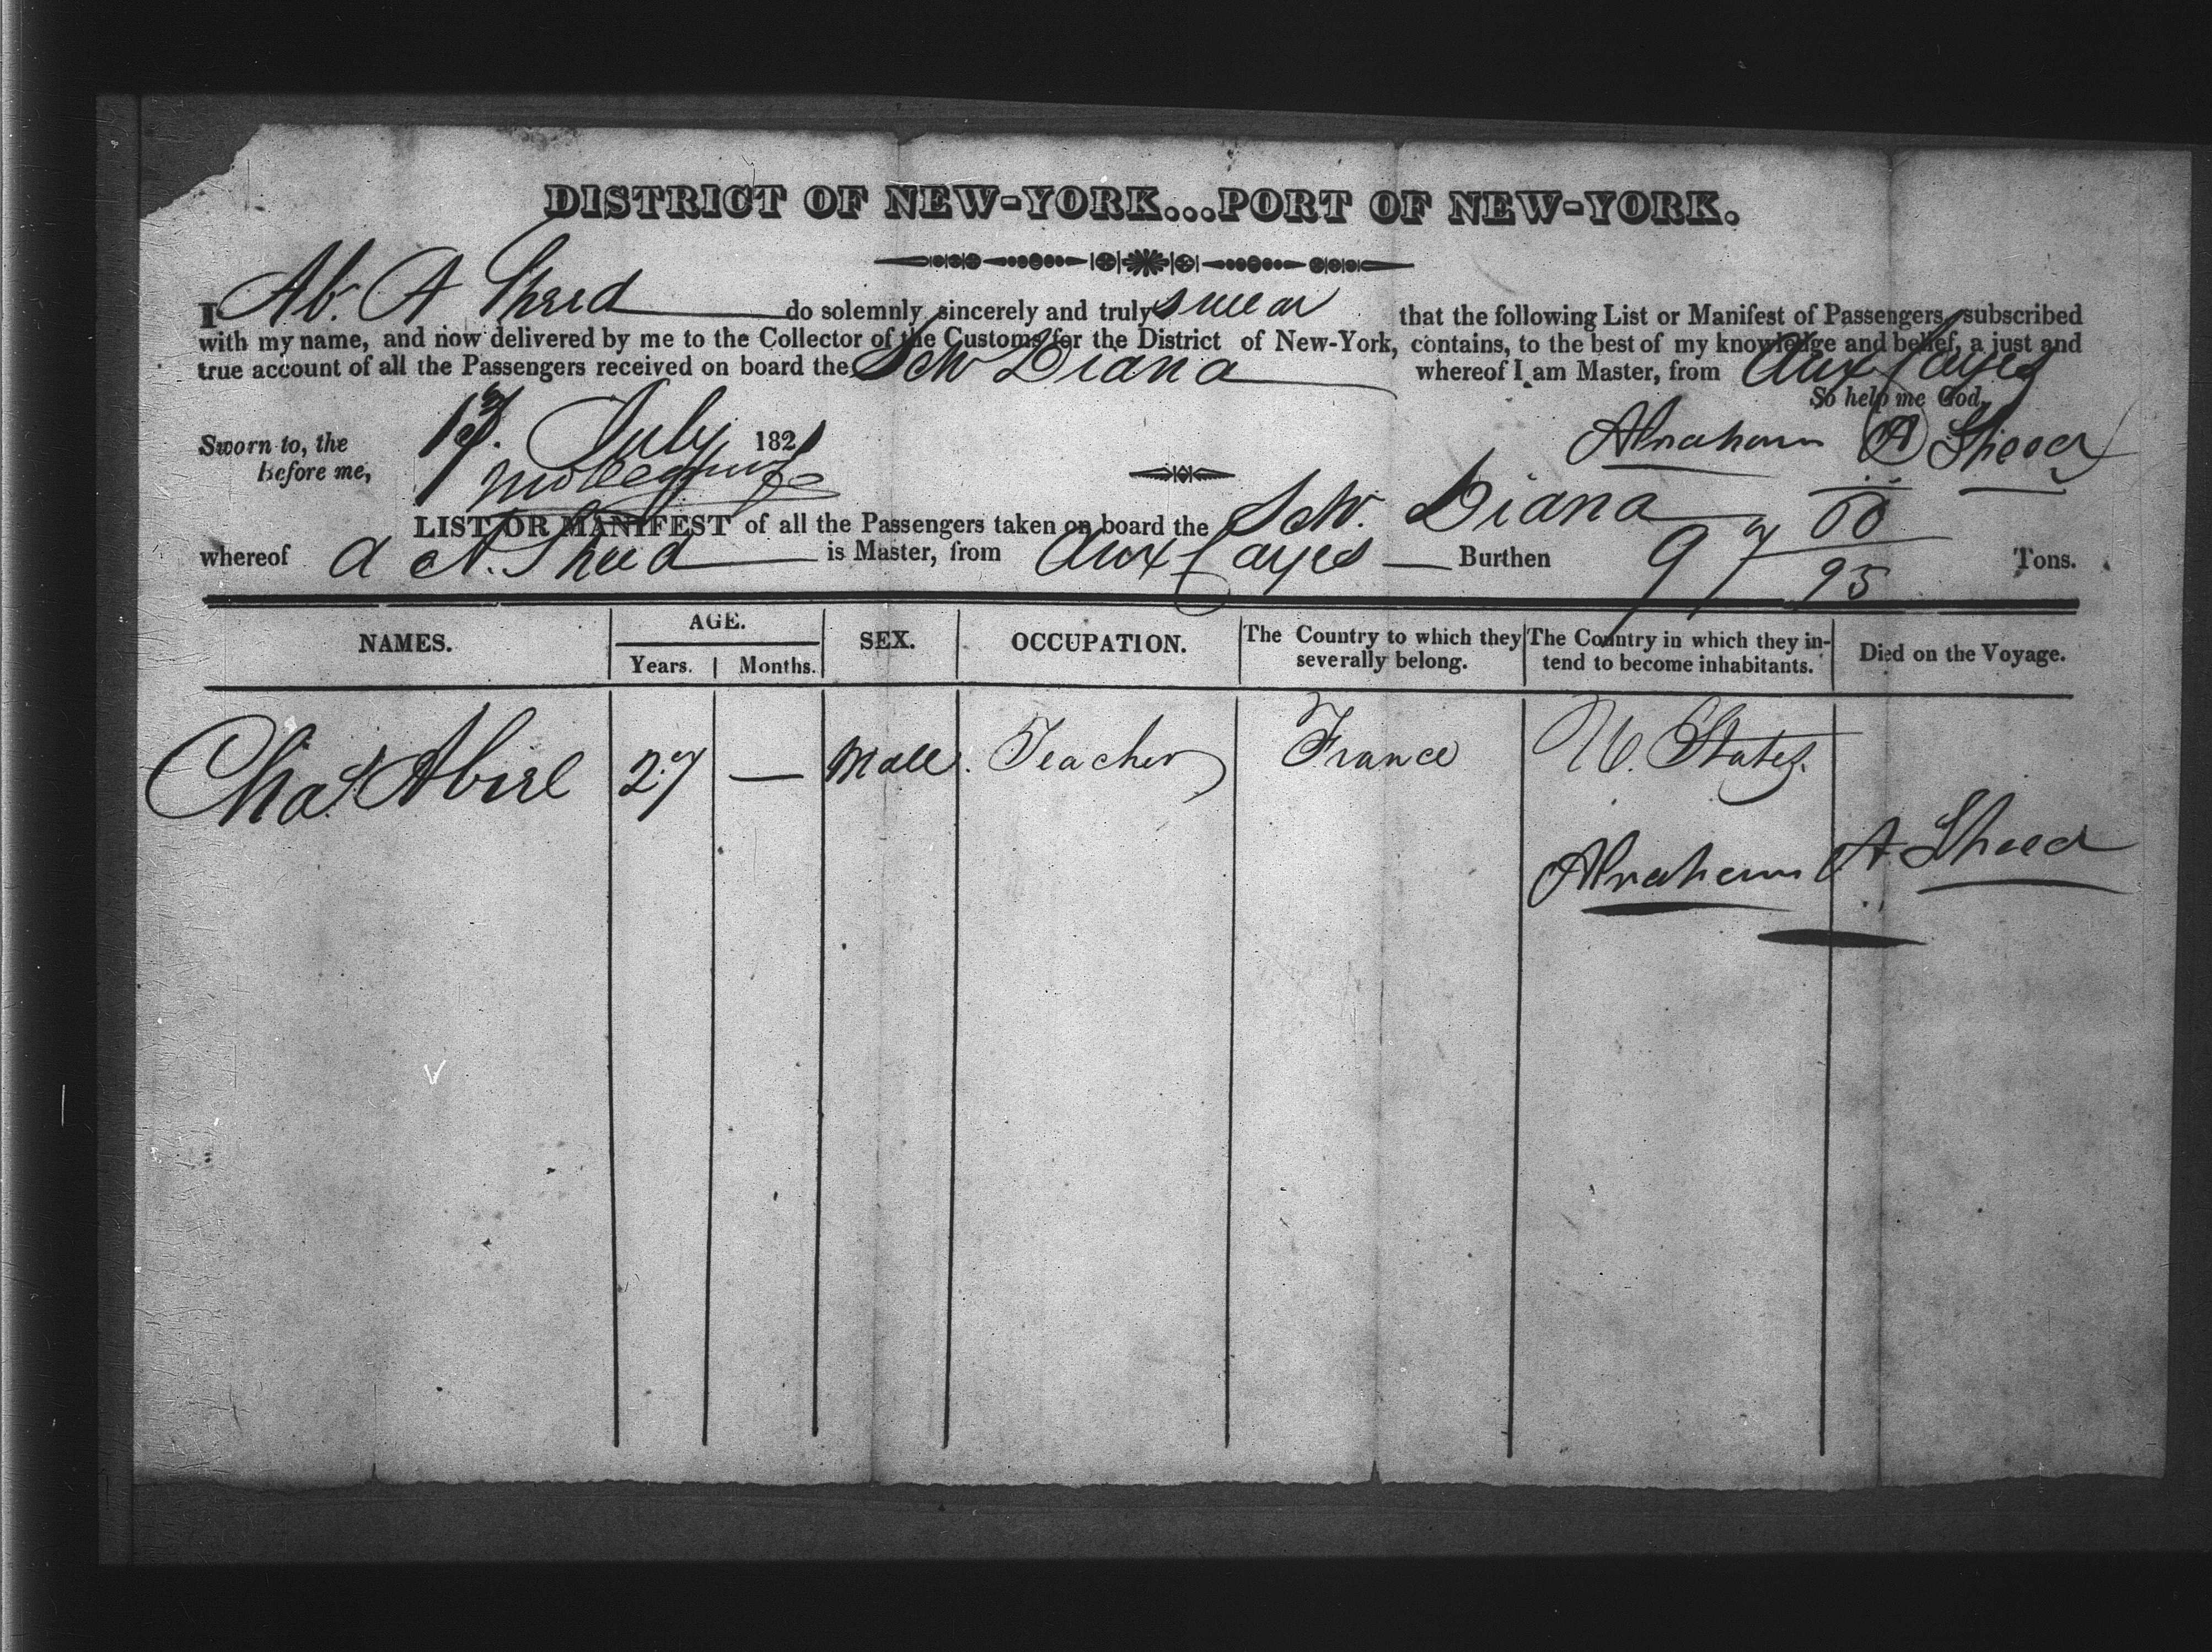 DISTRICT OF NEW-YORK...PORT OF NEW-YORK.
I Ab. A Sheed do solemnly, sincerely and truly swear that the following List or Manifest of Passengers, subscribed
with my name, and now delivered by me to the Collector of the Customs for the District of New-York, contains, to the best of my knowledge and belief, a just and
true account of all the Passengers received on board the Sch Diana whereof I am Master, from Aux Cayes
So help me God.
Sworn to, the July 1821 Abraham A Sheed
Before me,
LIST OR MANIFEST of all the Passengers taken on board the Sch. Diana
whereof A A. Sheed is Master, from Aux Cayes Burthen 97 /95 Tons.
NAMES. AGE. Years. Months. SEX. OCCUPATION. The Country to which they severally belong. The Country in which they intend to become inhabitants. Died on the Voyage.
Chas 27 — Male. Teacher France U. States.
Abraham A. Sheed